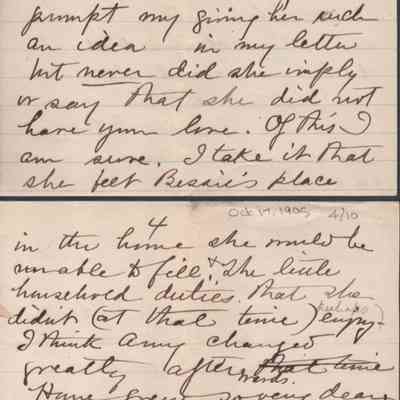 prompt my giving her such
an idea in my letter
but never did she imply
or say that she did not
have your love. Of this I
am sure. I take it that
she felt Bessie's place
Oct 17, 1905 4/10
4
in the home she would be
unable to fill & the little
household duties that she
didn't (at that time) (perhaps) enjoy-
I think Amy changed
greatly after that time
wards.